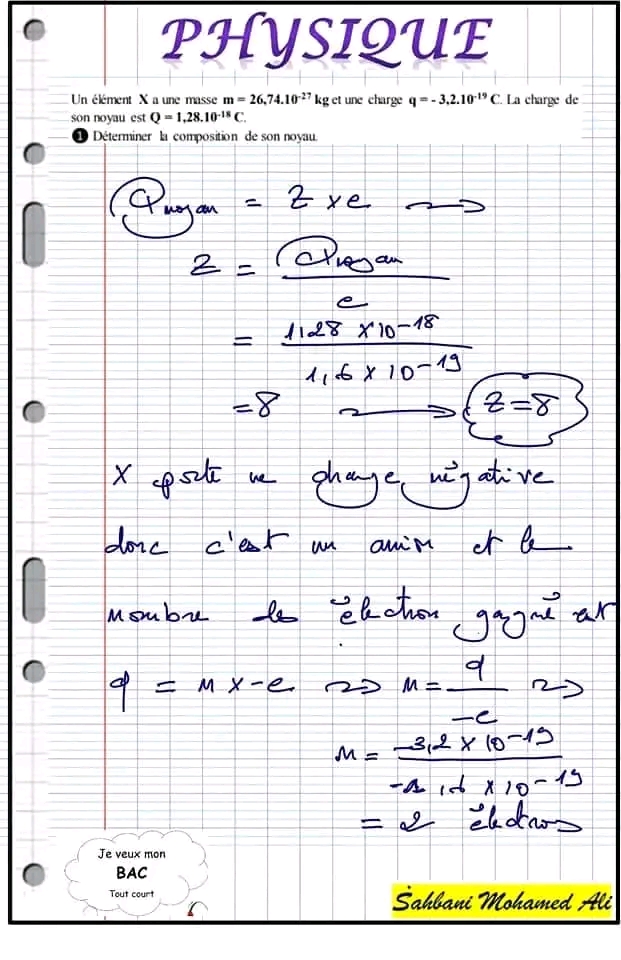 PHYSIQUE
Un élément X a une masse m = 26,74.10⁻²⁷ kg et une charge q = - 3,2.10⁻¹⁹ C. La charge de
son noyau est Q = 1,28.10⁻¹⁸ C.
❶ Déterminer la composition de son noyau.
Qnoyau = Z × e ⟹
Z = Qnoyau / e
= 1,28 × 10⁻¹⁸ / 1,6 × 10⁻¹⁹
= 8 ⟶ Z = 8
X porte une charge négative
donc c'est un anion et le
nombre des électron gagné est
q = n × -e ⟹ n = q / -e ⟹
n = -3,2 × 10⁻¹⁹ / -1,6 × 10⁻¹⁹
= 2 électrons
Je veux mon
BAC
Tout court
Sahbani Mohamed Ali